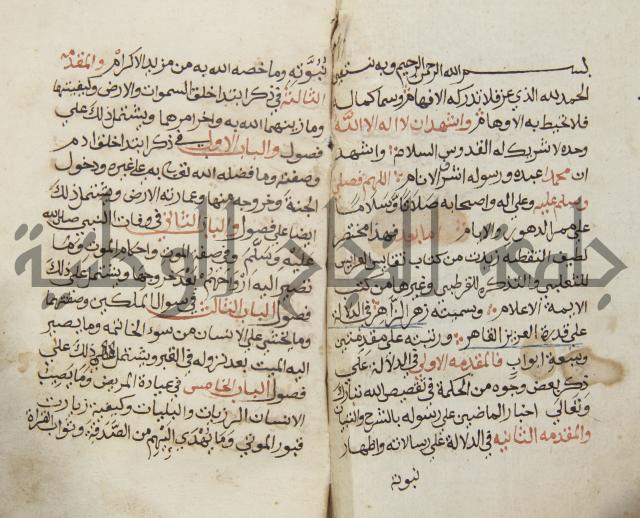 بسم الله الرحمن الرحيم وبه نستعين
الحمد لله الذي عز فلا تدركه الافهام وسما كماله
فلا تحيط به الاوهام واشهد ان لا اله الا الله
وحده لا شريك له القدوس السلام واشهد
ان محمدا عبده ورسوله اشرف الانام اللهم فصلي
وسلم عليه وعلى اله واصحابه صلاة وسلاما
على ممر الدهور والايام اما بعد فهذا مختصر
لطيف التقطته زبدت من كتاب نفايس العرايس
للثعلبي والتذكرة للقرطبي وغيرها من كتب
الايمة الاعلام وسميته زهر الزاهر في الدلالة
على قدرة العزيز القاهر ورتبته على مقدمتين
وسبعة ابواب فالمقدمه الاولى في الدلالة على
ذكر بعض وجوه من الحكمة في تقصيص الله تبارك
وتعالى اخبار الماضين على رسوله بالشرح والتبيان
والمقدمه الثانيه في الدلالة على رسالاته واظهار
نبوته
نبوته وما خصه الله به من مزيد الاكرام والمقدمه
الثالثة في ذكر ابتدا خلق السموات والارض وكيفيتها
وما زينهما الله به واخر امرها ويشتمل ذلك على
فصول والباب الاول في ذكر ابتدا خلق ادم
وصفته وما فضله الله تعالى به على غيره ودخول
الجنة وخروجه منها وعمارته الارض ويشتمل ذلك
ايضا على فصول والباب الثاني في وفات النبي صلى الله
عليه وسلم وفي صفة الموت واحكام الموت وما
تصير اليه ارواحهم بعد خروجها ويشتمل على ذلك
فصول الباب الثالث في سوال الملكين وصفتهما
وما يخشى على الانسان من سوء الخاتمه وما يصير
اليه الميت بعد نزوله في القبر ويشتمل ذلك على
فصول الباب الخامس في عيادة المريض وما يصيب
الانسان من الرزيات والبليات وكيفية زيارت
قبور الموتى وما يهدي اليهم من الصدقة وثواب القراة
جامعة النجاح الوطنية